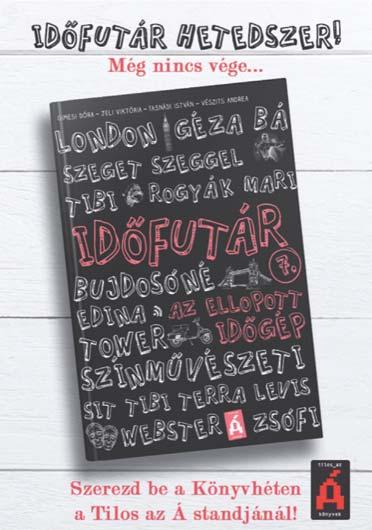 IDŐFUTÁR HETEDSZER!
Még nincs vége...
GIMESI DÓRA – JELI VIKTÓRIA – TASNÁDI ISTVÁN – VÉSZITS ANDREA
LONDON GÉZA BÁ
SZEGET SZEGGEL
TIBI ROGYÁK MARI
IDŐFUTÁR
7.
BUJDOSÓNÉ
EDINA AZ ELLOPOTT
TOWER IDŐGÉP
SZÍNMŰVÉSZETI
SIT TIBI TERRA LEVIS
WEBSTER Á ZSÓFI
Szerezd be a Könyvhéten
a Tilos az Á standjánál!
tilos_az
Á
könyvek